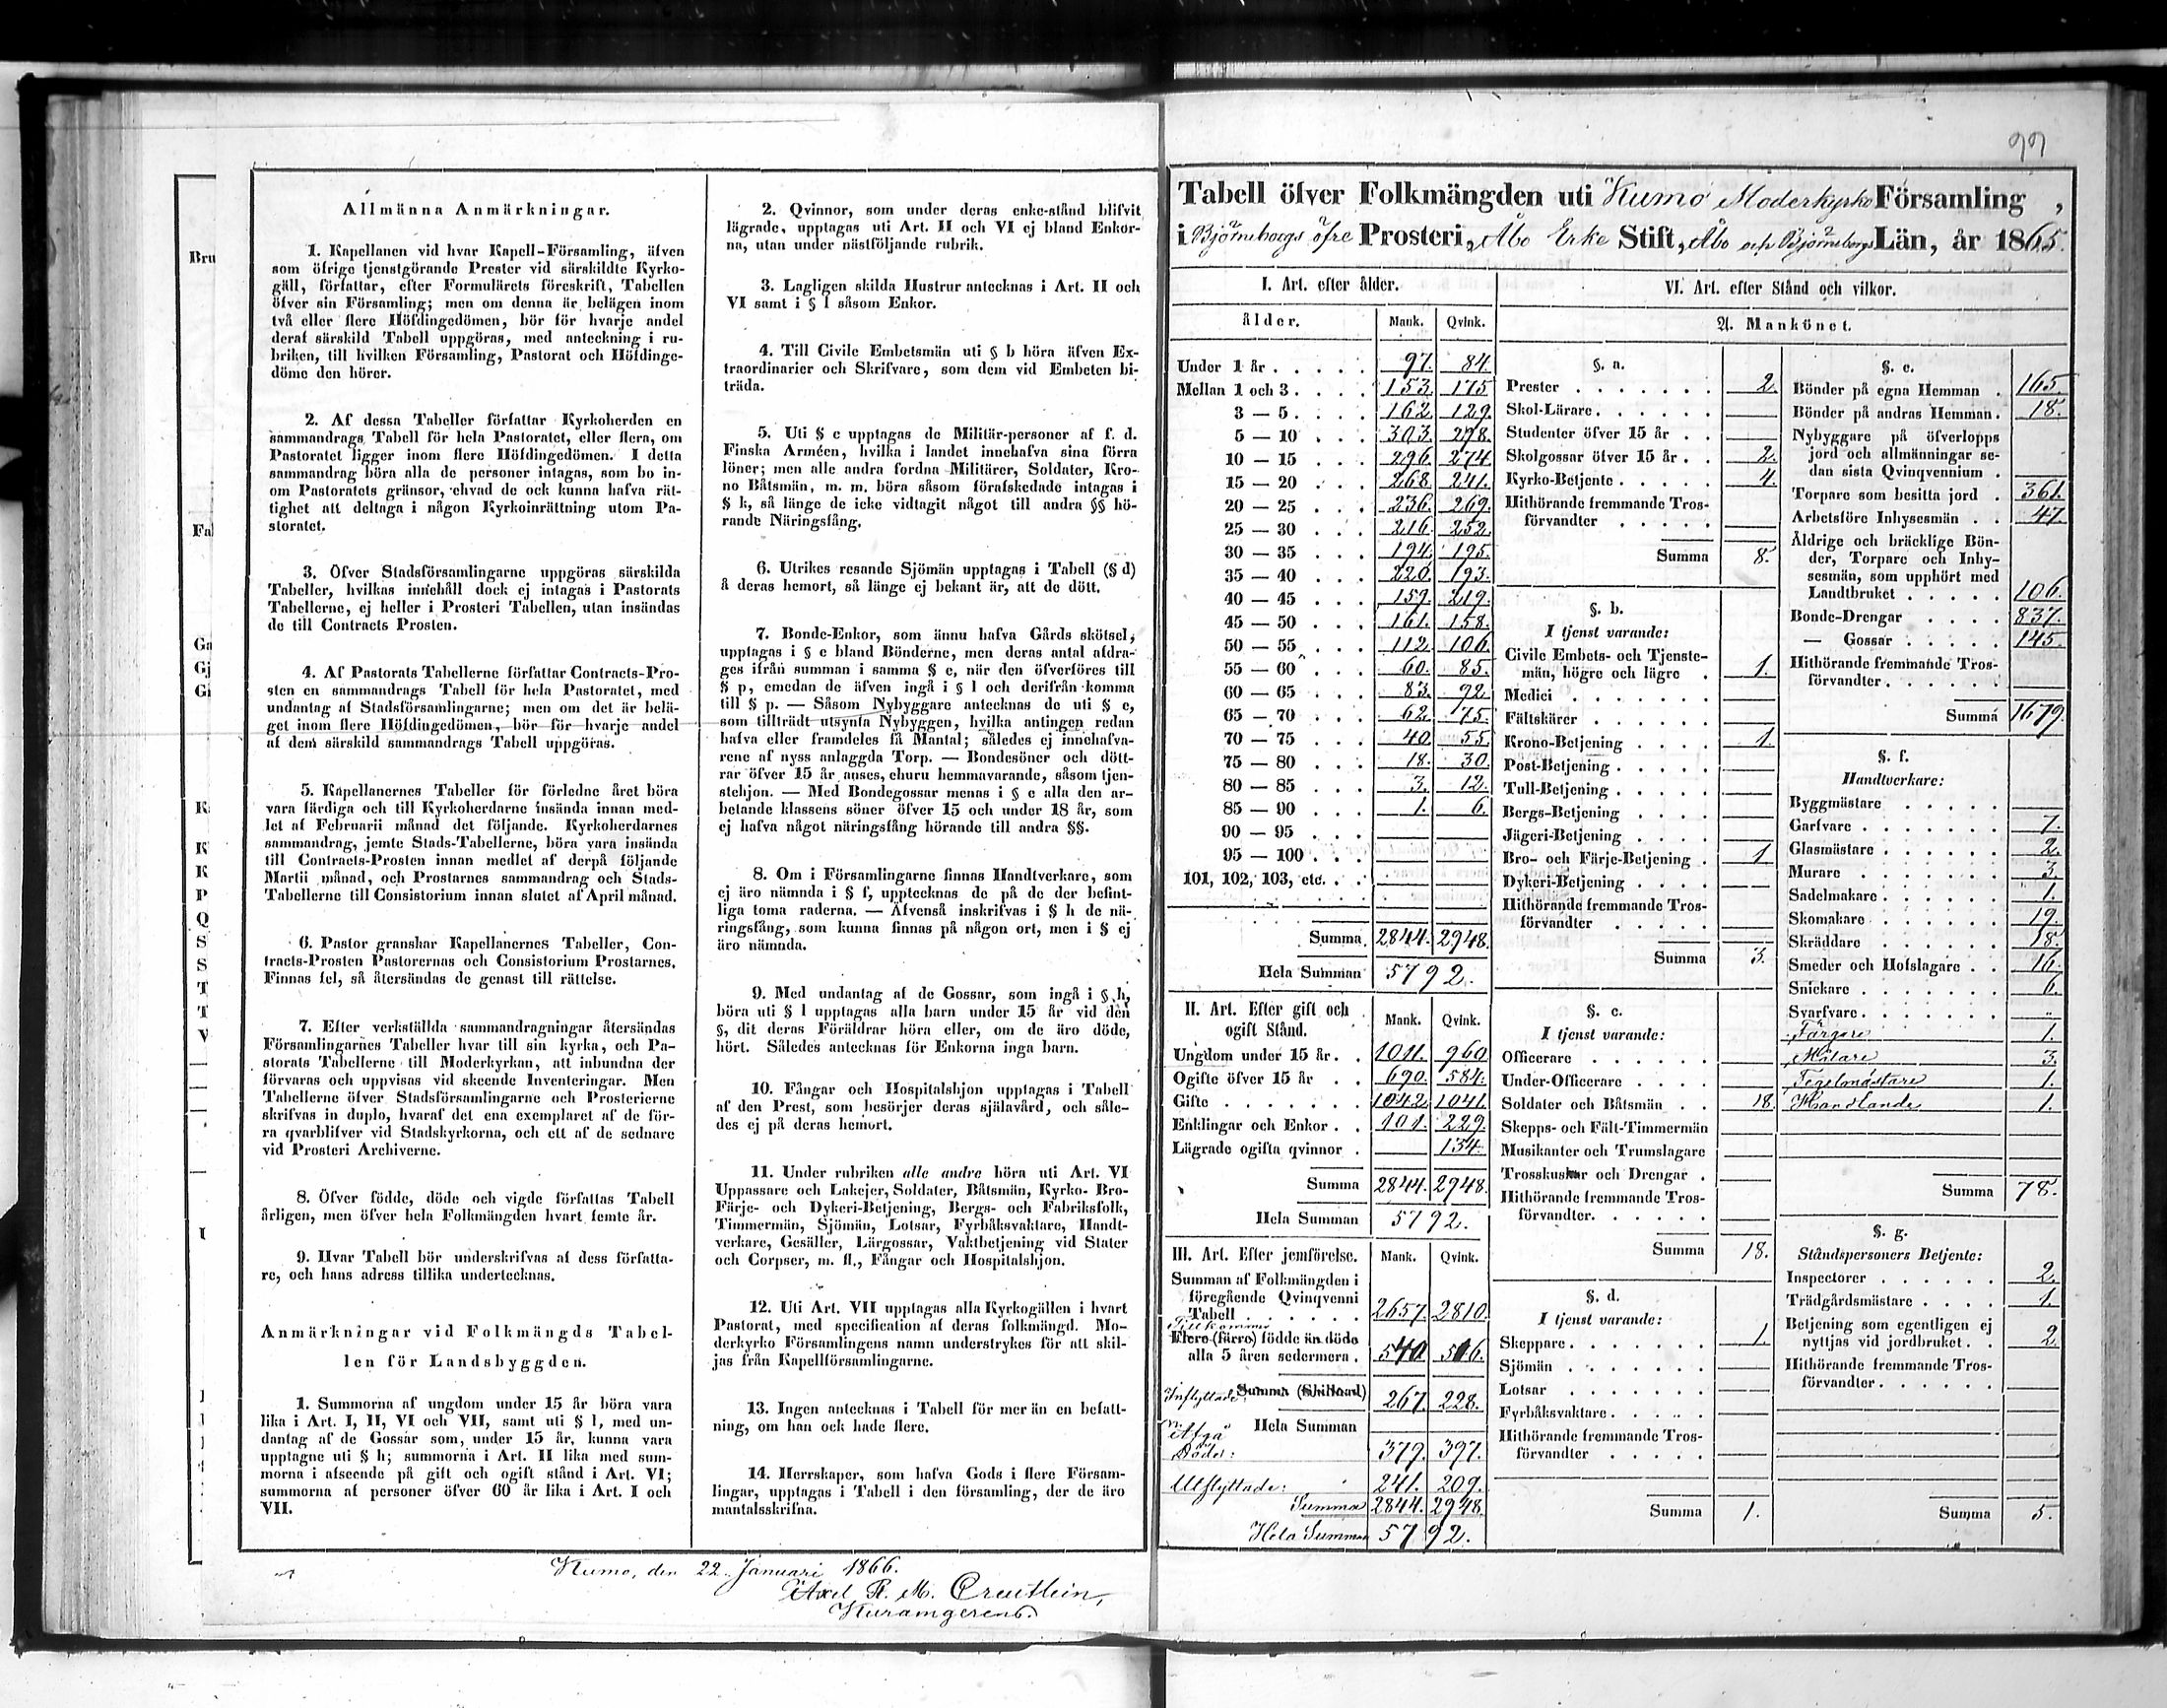 Allmänna Anmärkningar.
1. Kapellanen vid hvar Kapell-Församling, äfven
som öfrige tjenstgörande Prester vid särskildte Kyrko-
gäll, författar, efter Formulärets föreskrift, Tabellen
öfver sin Församling; men om denna är belägen inom
två eller flere Höfdingedömen, bör för hvarje andel
deraf särskild Tabell uppgöras, med anteckning i ru-
briken, till hvilken Församling, Pastorat och Höfdinge-
döme den hörer.
2. Af dessa Tabeller författar Kyrkoherden en
sammandrags Tabell för hela Pastoratet, eller flera, om
Pastoratet ligger inom flere Höfdingedömen. I detta
sammandrag böra alla de personer intagas, som bo in-
om Pastoratets gränsor, ehvad de ock kunna hafva rät-
tighet att deltaga i någon Kyrkoinrättning utom Pa-
storatet.
3. Öfver Stadsförsamlingarne uppgöras särskilda
Tabeller, hvilkas innehåll dock ej intagas i Pastorats
Tabellerne, ej heller i Prosteri Tabellen, utan insändas
de till Contracts Prosten.
4. Af Pastorats Tabellerne författar Contracts-Pro-
sten en sammandrags Tabell för hela Pastoratet, med
undantag af Stadsförsamlingarne; men om det är belä-
get inom flere Höfdingedömen, bör för hvarje andel
af dem särskild sammandrags Tabell uppgöras.
5. Kapellanernes Tabeller för förledne året böra
vara färdiga och till Kyrkoherdarne insända innan med-
let af Februarii månad det följande. Kyrkoherdarnes
sammandrag, jemte Stads-Tabellerne, böra vara insända
till Contracts-Prosten innan medlet af derpå följande
Martii månad, och Prostarnes sammandrag och Stads-
Tabellerne till Consistorium innan slutet af April månad.
6. Pastor granskar Kapellanernes Tabeller, Con-
tracts-Prosten Pastorernas och Consistorium Prostarnes.
Finnas fel, så återsändas de genast till rättelse.
7. Efter verkställda sammandragningar återsändas
Församlingarnes Tabeller hvar till sin kyrka, och Pa-
storats Tabellerne till Moderkyrkan, att inbundna der
förvaras och uppvisas vid skeende Inventeringar. Men
Tabellerne öfver Stadsförsamlingarne och Prosterierne
skrifvas in duplo, hvaraf det ena exemplaret af de för-
ra qvarblifver vid Stadskyrkorna, och ett af de sednare
vid Prosteri Archiverne.
8. Öfver födde, döde och vigde författas Tabell
årligen, men öfver hela Folkmängden hvart femte år.
9. Hvar Tabell bör underskrifvas af dess författa-
re, och hans adress tillika undertecknas.
Anmärkningar vid Folkmängds Tabel-
len för Landsbyggden.
1. Summorna af ungdom under 15 år böra vara
lika i Art. I, II, VI och VII, samt uti § l, med un-
dantag af de Gossar som, under 15 år, kunna vara
upptagne uti § h; summorna i Art. II lika med sum-
morna i afseende på gift och ogift stånd i Art. VI;
summorna af personer öfver 60 år lika i Art. I och
VII.
2. Qvinnor, som under deras enke-stånd blifvit
lägrade, upptagas uti Art. II och VI ej bland Enkor-
na, utan under nästföljande rubrik.
3. Lagligen skilda Hustrur antecknas i Art. II och
VI samt i § l såsom Enkor.
4. Till Civile Embetsmän uti § b höra äfven Ex-
traordinarier och Skrifvare, som dem vid Embeten bi-
träda.
5. Uti § c upptagas de Militär-personer af f. d.
Finska Arméen, hvilka i landet innehafva sina förra
löner; men alle andra fordna Militärer, Soldater, Kro-
no Båtsmän, m. m. böra såsom förafskedade intagas i
§ k, så länge de icke vidtagit något till andra §§ hö-
rande Näringsfång.
6. Utrikes resande Sjömän upptagas i Tabell (§ d)
å deras hemort, så länge ej bekant är, att de dött.
7. Bonde-Enkor, som ännu hafva Gårds skötsel,
upptagas i § e bland Bönderne, men deras antal afdra-
ges ifrån summan i samma § e, när den öfverföres till
§ p, emedan de äfven ingå i § l och derifrån komma
till § p. — Såsom Nybyggare antecknas de uti § e,
som tillträdt utsynta Nybyggen, hvilka antingen redan
hafva eller framdeles få Mantal; således ej innehafva-
rene af nyss anlaggda Torp. — Bondesöner och dött-
rar öfver 15 år anses, churu hemmavarande, såsom tjen-
stehjon. — Med Bondegossar menas i § e alla den ar-
betande klassens söner öfver 15 och under 18 år, som
ej hafva något näringsfång hörande till andra §§.
8. Om i Församlingarne finnas Handtverkare, som
ej äro nämnda i § f, upptecknas de på de der befint-
liga toma raderna. — Äfvenså inskrifvas i § h de nä-
ringsfång, som kunna finnas på någon ort, men i § ej
äro nämnda.
9. Med undantag af de Gossar, som ingå i § h,
böra uti § l upptagas alla barn under 15 år vid den
§, dit deras Föräldrar höra eller, om de äro döde,
hört. Således antecknas för Enkorna inga barn.
10. Fångar och Hospitalshjon upptagas i Tabell
af den Prest, som besörjer deras själavård, och såle-
des ej på deras hemort.
11. Under rubriken alle andre höra uti Art. VI
Uppassare och Lakejer, Soldater, Båtsmän, Kyrko- Bro-
Färje- och Dykeri-Betjening, Bergs- och Fabriksfolk,
Timmermän, Sjömän, Lotsar, Fyrbåksvaktare, Handt-
verkare, Gesäller, Lärgossar, Vaktbetjening vid Stater
och Corpser, m. fl., Fångar och Hospitalshjon.
12. Uti Art. VII upptagas alla Kyrkogällen i hvart
Pastorat, med specification af deras folkmängd. Mo-
derkyrko Församlingens namn understrykes för att skil-
jas från Kapellförsamlingarne.
13. Ingen antecknas i Tabell för mer än en befatt-
ning, om han ock hade flere.
14. Herrskaper, som hafva Gods i flere Försam-
lingar, upptagas i Tabell i den församling, der de äro
mantalsskrifna.
Kumo, den 22 Januari 1866.
Axel R. M. Creutlein,
99
Tabell öfver Folkmängden uti Kumo Moderkyrko Församling,
i Björneborgs öfre Prosteri, Åbo Erke Stift, Åbo och Björneborgs Län, år 1865.
I. Art. efter ålder.
Ålder. Mank. Qvink.
Under 1 år 97. 84.
Mellan 1 och 3 153. 175
3 — 5 162. 129.
5 — 10 303. 278.
10 — 15 296. 274
15 — 20 268. 241.
20 — 25 236. 269.
25 — 30 216. 252.
30 — 35 194. 195.
35 — 40 220. 193.
40 — 45 159. 219.
45 — 50 161. 158.
50 — 55 112. 106.
55 — 60 60. 85.
60 — 65 83. 92.
65 — 70 62. 75.
70 — 75 40. 55.
75 — 80 18. 30.
80 — 85 3. 12.
85 — 90 1. 6.
90 — 95
95 — 100
101, 102, 103, etc.
Summa 2844. 2948.
Hela Summan 5792.
II. Art. Efter gift och
ogift Stånd. Mank. Qvink.
Ungdom under 15 år 1011. 960
Ogifte öfver 15 år 690. 584.
Gifte 1042. 1041.
Enklingar och Enkor 101. 229.
Lägrade ogifta qvinnor 134.
Summa 2844. 2948.
Hela Summan 5792.
III. Art. Efter jemförelse. Mank. Qvink.
Summan af Folkmängden i
föregående Qvinqvenni
Tabell 2657. 2810.
Flere (färre) födde än döde
alla 5 åren sedermera 540 516.
Inflyttade Summa (Skillnad) 267. 228.
Hela Summan
Afgå
Döde: 379. 397.
Utflyttade: 241. 209.
Summa 2844. 2948.
Hela Summan 5792.
VI. Art. efter Stånd och vilkor.
A. Mankönet.
§. a.
Prester 2.
Skol-Lärare
Studenter öfver 15 år
Skolgossar öfver 15 år 2.
Kyrko-Betjente 4.
Hithörande fremmande Tros-
förvandter
Summa 8.
§. b.
I tjenst varande:
Civile Embets- och Tjenste-
män, högre och lägre 1.
Medici
Fältskärer
Krono-Betjening 1.
Post-Betjening
Tull-Betjening
Bergs-Betjening
Jägeri-Betjening
Bro- och Färje-Betjening 1
Dykeri-Betjening
Hithörande fremmande Tros-
förvandter
Summa 3.
§. c.
I tjenst varande:
Officerare
Under-Officerare
Soldater och Båtsmän 18.
Skepps- och Fält-Timmermän
Musikanter och Trumslagare
Trosskuskar och Drengar
Hithörande fremmande Tros-
förvandter
Summa 18.
§. d.
I tjenst varande:
Skeppare 1.
Sjömän
Lotsar
Fyrbåksvaktare
Hithörande fremmande Tros-
förvandter
Summa 1.
§. e.
Bönder på egna Hemman 165.
Bönder på andras Hemman 18.
Nybyggare på öfverlopps
jord och allmänningar se-
dan sista Qvinqvennium
Torpare som besitta jord 361.
Arbetsföre Inhysesmän 47.
Åldrige och bräcklige Bön-
der, Torpare och Inhy-
sesmän, som upphört med
Landtbruket 106.
Bonde-Drengar 837.
— Gossar 145.
Hithörande fremmande Tros-
förvandter
Summa 1679.
§. f.
Handtverkare:
Byggmästare
Garfvare 7.
Glasmästare 2.
Murare 3.
Sadelmakare 1.
Skomakare 19.
Skräddare 18.
Smeder och Hofslagare 16.
Snickare 6.
Svarfvare
Färgare 1.
Målare 3.
Tegelmästare 1.
Handlande 1.
Summa 78.
§. g.
Ståndspersoners Betjente:
Inspectorer 2.
Trädgårdsmästare 1.
Betjening som egentligen ej
nyttjas vid jordbruket 2.
Hithörande fremmande Tros-
förvandter
Summa 5.